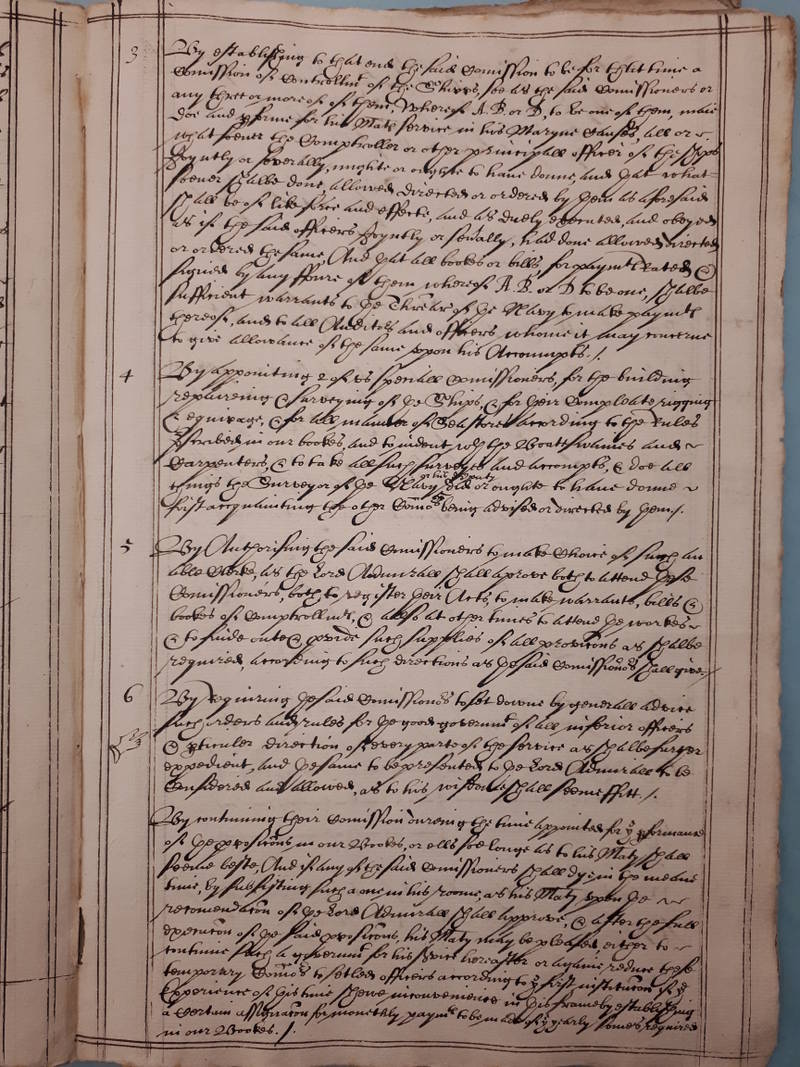 3 By establishing to that end the said Comission to be for that time a
Comission of Controllmt of the Shipps, soe as the said Comissioners or
any three or more of of them, whereof A. B. or D, to be one of them, maie
doe and pforme for his Mats service in his Maryne Causes, all or
what soever the Comptroller or other principall officers of the Shipps
Joyntly or severally, might or ought to have donne, and that what
soever shalbe done, allowed directed or ordered by them as aforesaid
shall be of like force and effecte, and as duely executed, and obeyed
as if the said officers Joyntly or sevally, had done allowed directed
or ordered the same, And that all bookes or bills, for paymt Rated &
signed by any ffoure of them whereof A. B. or D to be one, shalbe
sufficient warrants to the Threar of the Navy to make paymt
thereof, and to all Auditors and officers whome it may concerne
to give allowance of the same uppon his Accoumpts. /.
4 By appointing 2 of us speciall Comissioners, for the building
repaireing & surveying of the Ships, & for their Compleate rigging
& equipage, & for all manner of Sea stores according to the Rules
pscribed in our bookes, and to indent wth the Boatswaines and
Carpenters, & to take all such surveyes and accompts, & doe all
things the Surveyor of the Navy or his deputy did or ought to have donne
first acquainting the other Comrs & being advised or directed by them /.
5 By Authorising the said Comissioners to make Choice of such an
able Clerke, as the Lord Admirall shall aprove both to attend these
Comissioners, both to register their Acts, to make warrants, bills &
bookes of Comptrollmt, & allso at other times to attend the workes
& to finde oute & pvide such supplies of all provicons as shalbe
required, according to such directions as the said Comissionrs shall give /
6 By requiring the said Comissionrs to set downe by generall advice
such orders and rules for the good governmt of all inferior officers
& pticuler direction of every parte of the service as shalbe further
expedient, and the same to be presented to the Lord Admirall to be
Considered and allowed, as to his wisdome shall seeme fitt. /.
By continuing their Comission dureing the time appointed for ye pformance
of the propositions in our Bookes, or ells soe longe as to his Maty shall
seeme beste, And if any of the said Comissioners shall dye in the meane
time, by substituting such a one in his roome, as his Maty upon the
recomendacon of the Lord Admirall shall approve, & after the full
execucon of the said propositions, his Maty may be pleased either to
continue such a governmt for his service hereafter or againe reduce these
temporary Comrs to setled officers according to ye first institucon if ye
Experience of this time shewe inconvenience in this frame by establishing
a Certain assignacon for monthly paymt to be made of ye yearly somes required
in our Bookes. /.